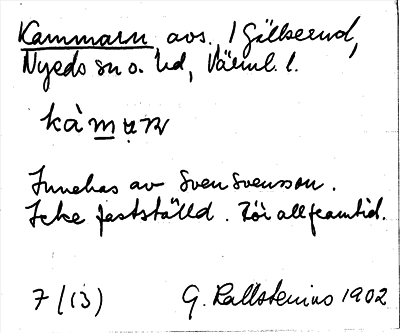 Kammarn avs. / Gällserud,
Nyeds sn o. hd, Värml. l.
kàmarn
Innehas av Sven Svensson.
Icke fastställd. För all framtid.
7/(13) G. Kallstenius 1902